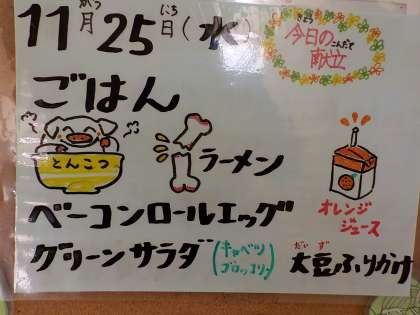 11月25日(水)
がつ にち
きょう こんだて
今日の献立
ごはん
とんこつ ラーメン
オレンジ
ジュース
ベーコンロールエッグ
グリーンサラダ (キャベツ
ブロッコリー)
だいず
大豆ふりかけ